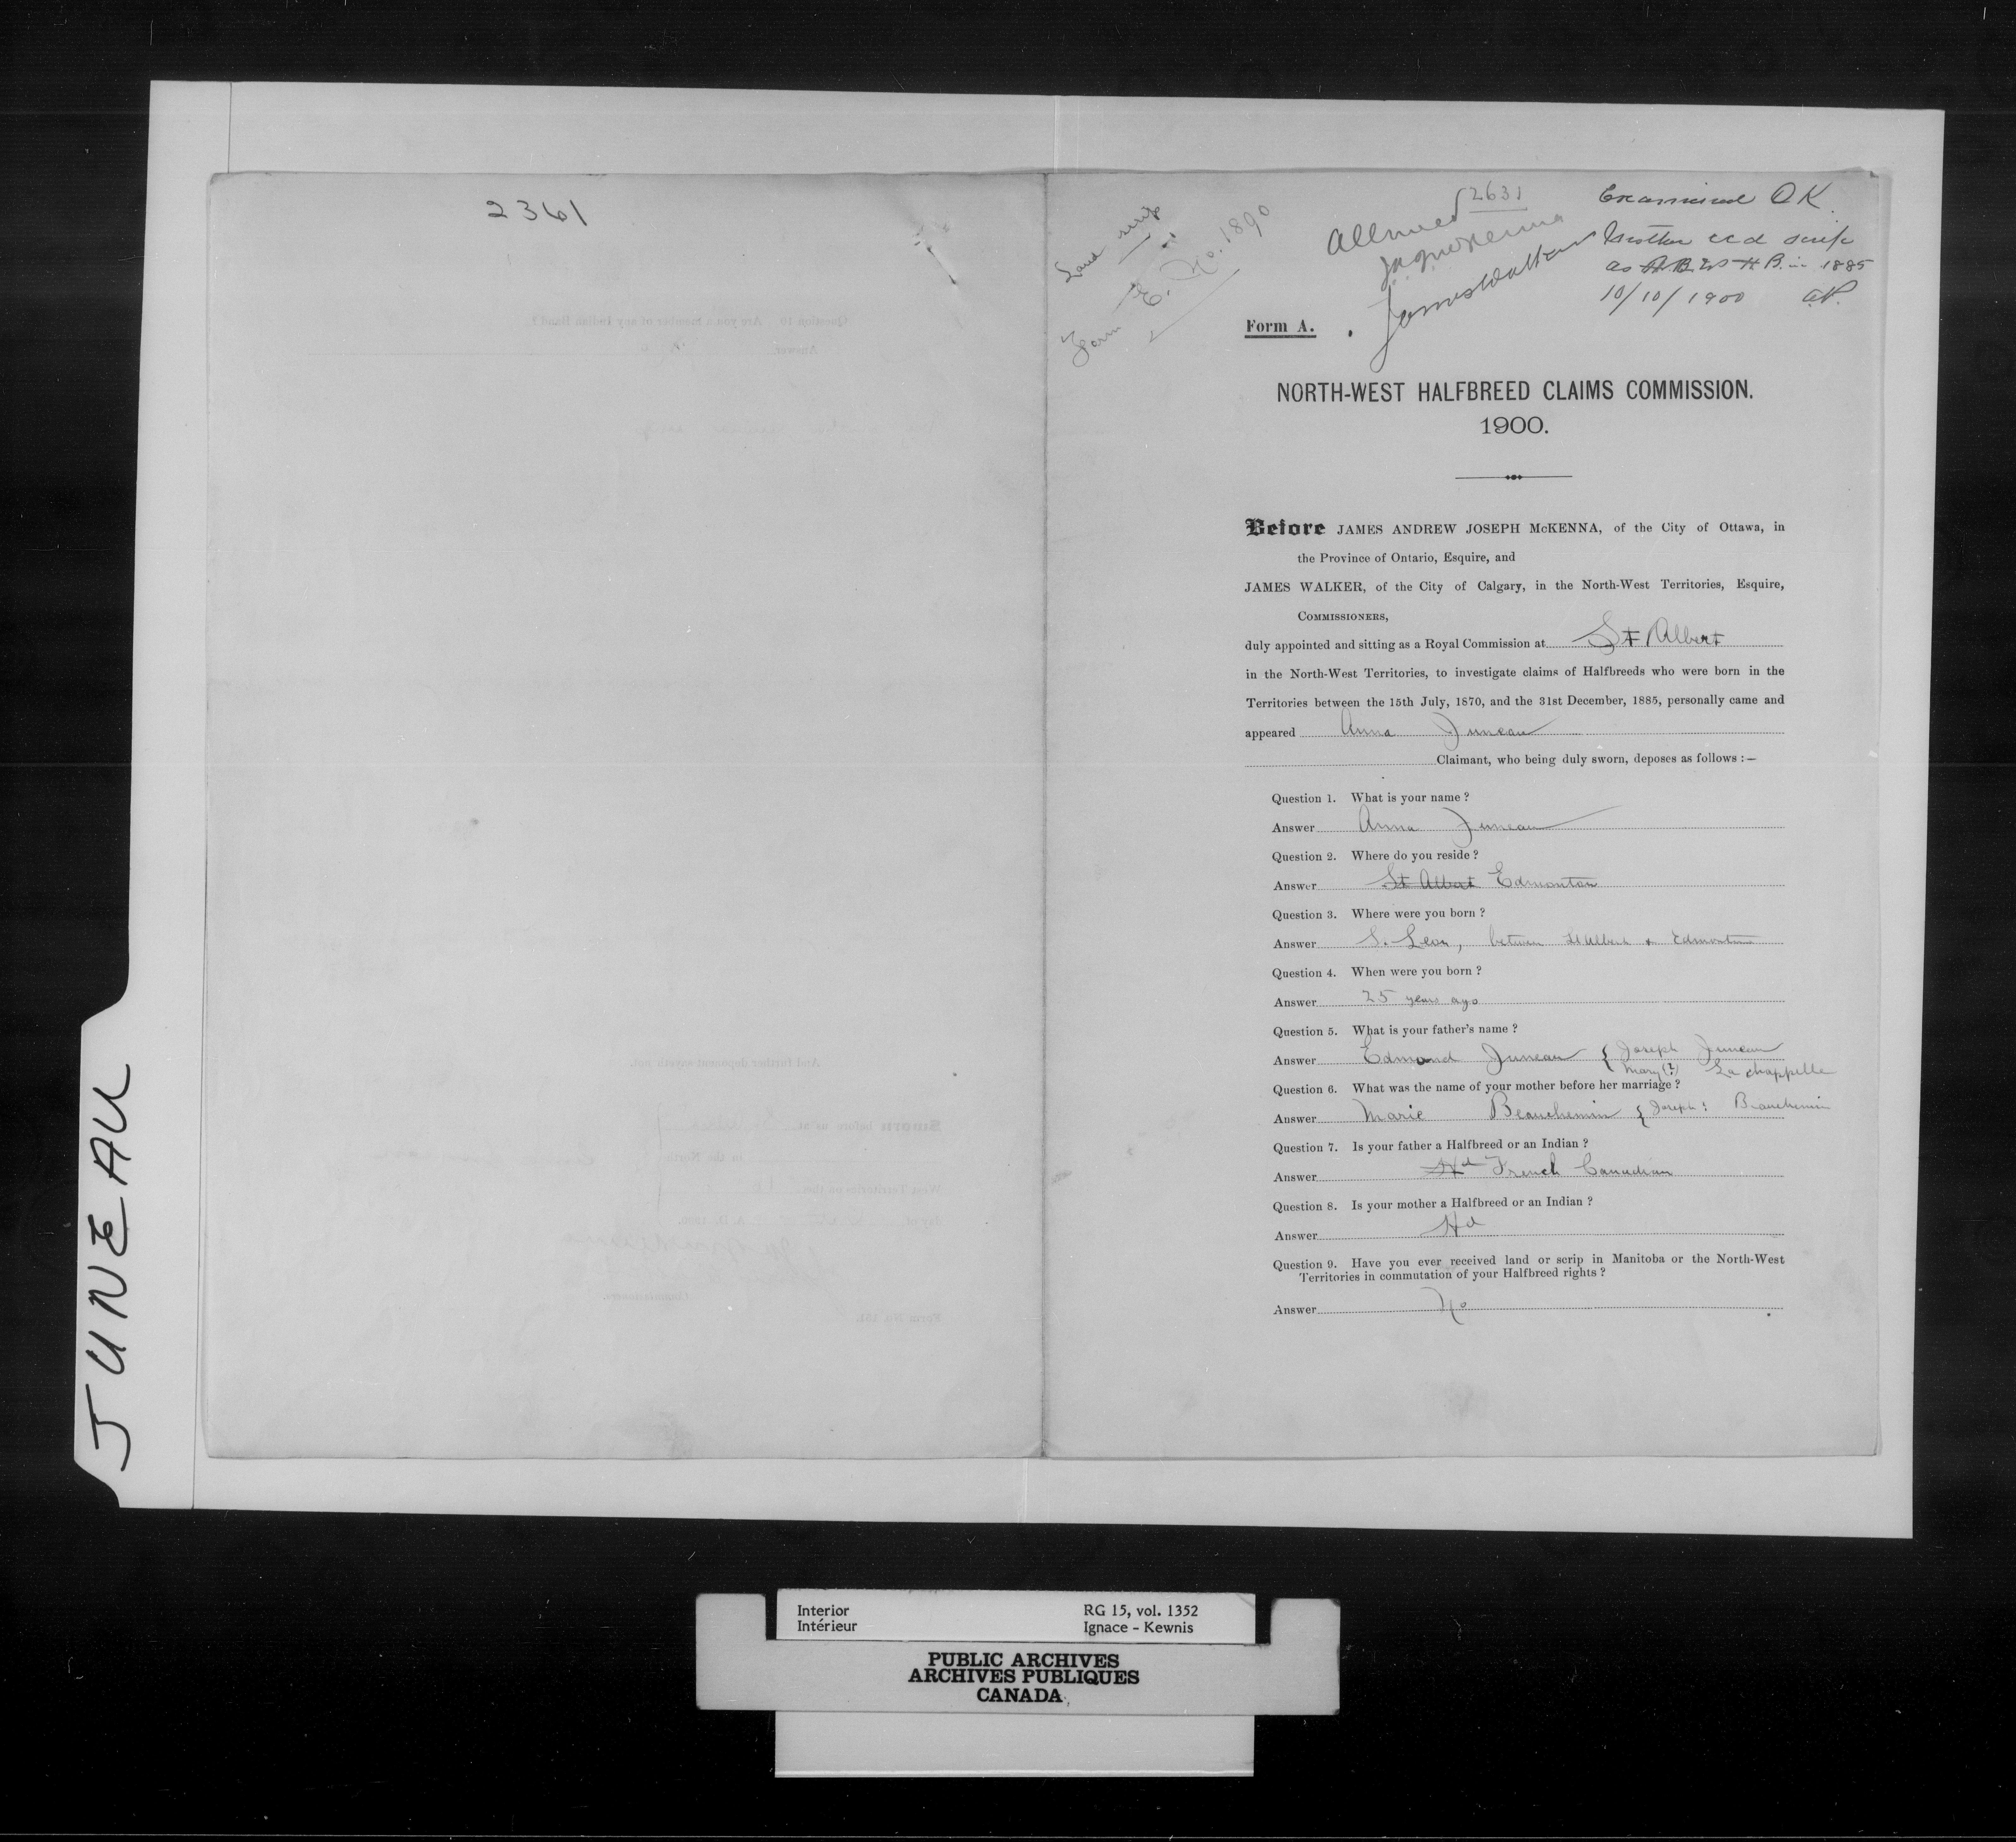 JUNEAU
2361
Land scrip
Form E. No. 1890
2631
Allowed
JAJMcKenna
James Walker
Examined OK.
Mother rcd scrip
as H.B. in 1885
10/10/1900
Form A.
NORTH-WEST HALFBREED CLAIMS COMMISSION.
1900.
Before JAMES ANDREW JOSEPH McKENNA, of the City of Ottawa, in
the Province of Ontario, Esquire, and
JAMES WALKER, of the City of Calgary, in the North-West Territories, Esquire,
COMMISSIONERS,
duly appointed and sitting as a Royal Commission at St Albert
in the North-West Territories, to investigate claims of Halfbreeds who were born in the
Territories between the 15th July, 1870, and the 31st December, 1885, personally came and
appeared Anna Juneau
Claimant, who being duly sworn, deposes as follows :—
Question 1. What is your name ?
Answer Anna Juneau
Question 2. Where do you reside ?
Answer St Albert Edmonton
Question 3. Where were you born ?
Answer S. Leon, between St Albert & Edmonton
Question 4. When were you born ?
Answer 25 years ago
Question 5. What is your father's name ?
Answer Edmond Juneau { Joseph Juneau
Mary (?) Lachappelle
Question 6. What was the name of your mother before her marriage ?
Answer Marie Beauchemin { Joseph : Beauchemin
Question 7. Is your father a Halfbreed or an Indian ?
Answer Hd French Canadian
Question 8. Is your mother a Halfbreed or an Indian ?
Answer Hd
Question 9. Have you ever received land or scrip in Manitoba or the North-West
Territories in commutation of your Halfbreed rights ?
Answer No
Interior RG 15, vol. 1352
Intérieur Ignace - Kewnis
PUBLIC ARCHIVES
ARCHIVES PUBLIQUES
CANADA